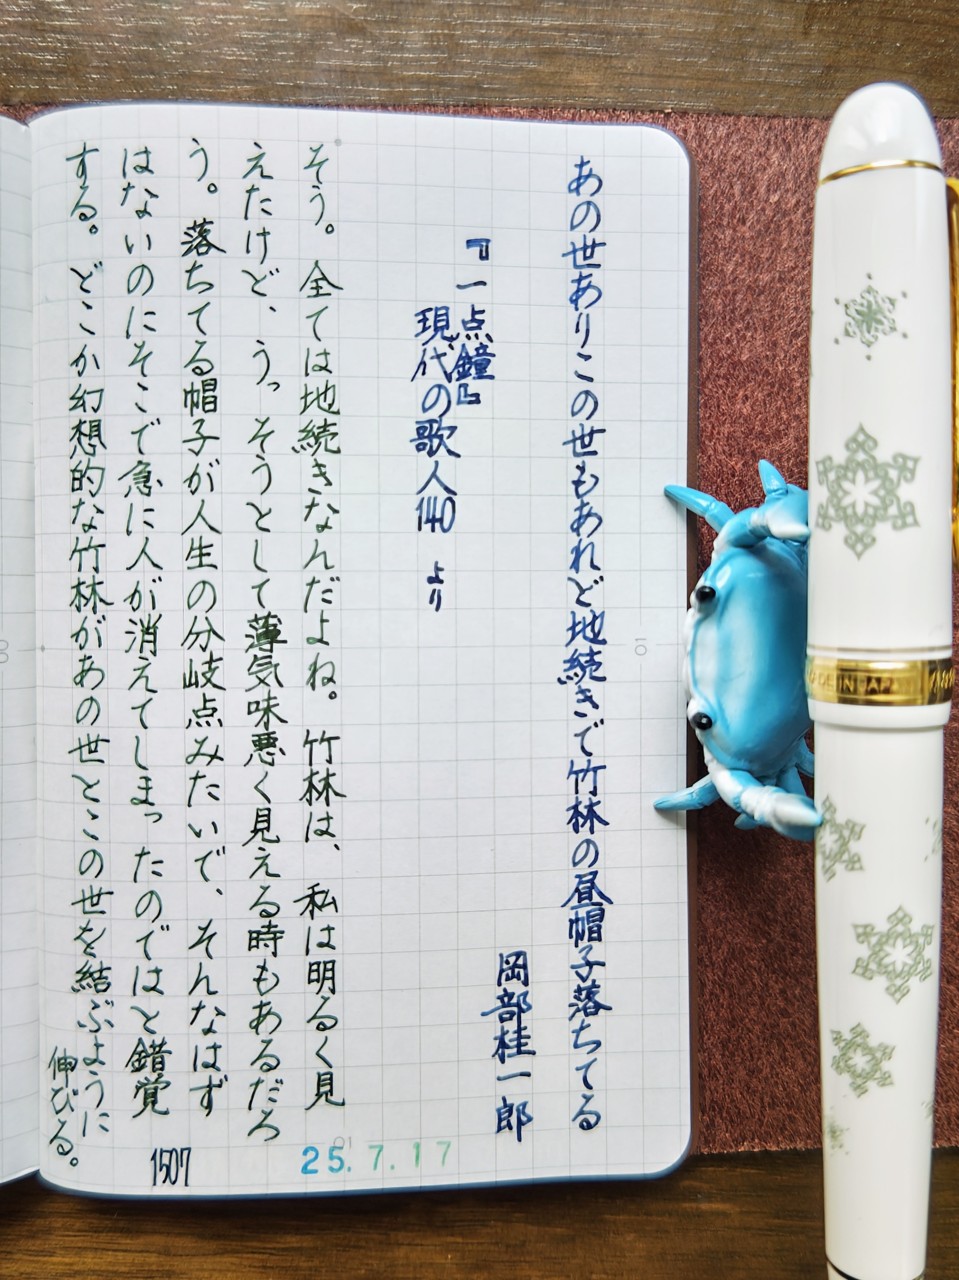 あの世ありこの世もあれど地続きで竹林の昼帽子落ちてる
岡部桂一郎
『一点鐘』
現代の歌人140 より
そう。全ては地続きなんだよね。竹林は、私は明るく見
えたけど、うっそうとして薄気味悪く見える時もあるだろ
う。落ちてる帽子が人生の分岐点みたいで、そんなはず
はないのにそこで急に人が消えてしまったのではと錯覚
する。どこか幻想的な竹林があの世とこの世を結ぶように
伸びる。
1507
25.7.17
01
10
MADE IN JAPAN